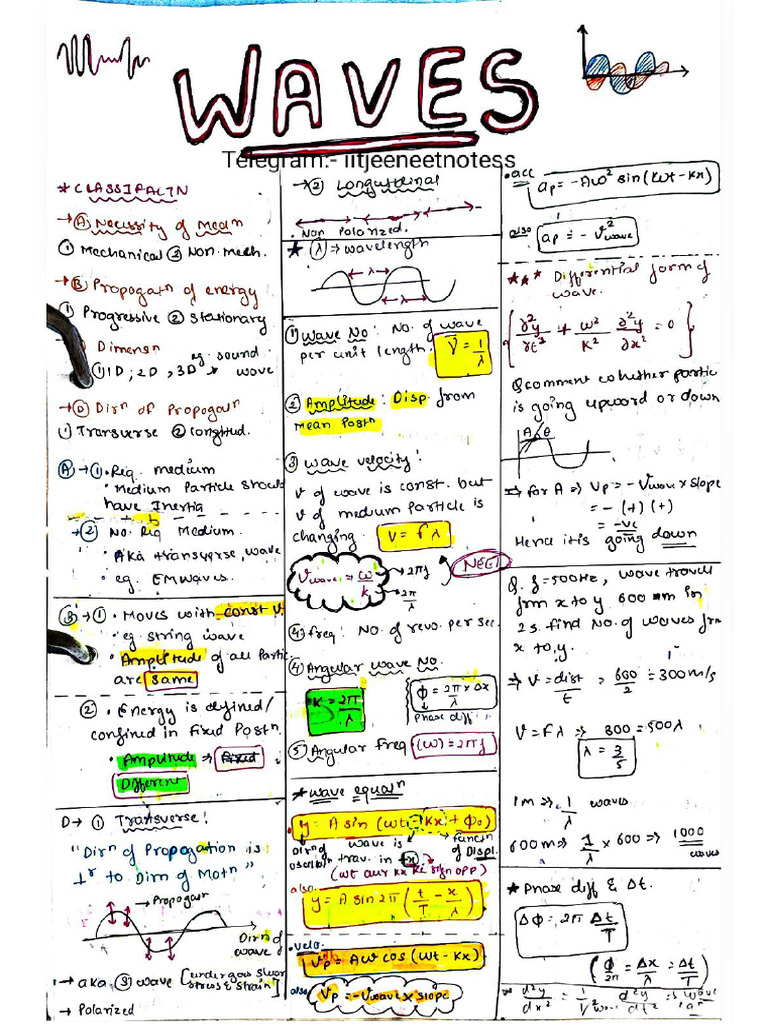 WAVES
Telegram:- iitjeeneetnotess
* CLASSIFACTN
→ (A) Necessity of Mean
① Mechanical ② Non. Mech.
→ (B) Propogatn of energy
① Progressive ② Stationary
) Dimensn
① 1D, 2D, 3D eg. sound wave
→ (D) Dirn of Propogatn
① Transverse ② longitud.
(A) → ① Req. medium
• Medium Particle should
have Inertia
→ ② No. Req Medium.
• AKA transverse, wave
• eg. EM waves.
(B) → ① • Moves with const V.
• eg. string wave
• Amplitude of all Partic
are same
② • Energy is defined/
confined in Fixed Postn
• Amplitude ⇒ Fixed
Different
D → ① Transverse!
"Dirn of Propogation is
⊥r to Dirn of Motn"
→ Propogatn
Dirn of
wave
→ aka S wave [undergoes
stress & strain]
→ Polarized
→ ② Longitudinal
• Non Polarized.
★ (λ) ⇒ wavelength
← λ →
← λ →
① Wave No: No. of wave
per unit length. V̄ = 1/λ
② Amplitude: Disp. from
Mean Postn
③ Wave velocity!
V of wave is const. but
V of medium Particle is
changing. V = fλ
Vwave = ω/k → 2πf
→ 2π/λ
④ freq! No. of revo. per sec.
④ Angular wave No.
K = 2π/λ
ϕ = 2π × Δx/λ
Phase diff
⑤ Angular Freq (ω) = 2πf
* wave equan
y = A sin (ωt - Kx + ϕ₀)
Dirn of
wave is
trav. in +x
functn
of Displ.
(ωt aur Kx ke sign opp)
also.
y = A sin 2π (t/T - x/λ)
• velo.
Vp = Aω cos (ωt - Kx)
also
Vp = -Vwave × slope
• acc
ap = -Aω² sin (ωt - Kx)
also
ap = -V²wave
★★★ Differential form of
wave.
{ ∂²y/∂t² + ω²/K² ∂²y/∂x² = 0 }
Q comment whether partic
is going upword or down
A θ
⇒ for A ⇒ Vp = - Vwave × slope
= - (+) (+)
= -ve
Hence it is going down
Q. f = 500Hz, wave travels
from x to y 600 m in
2s. find No. of waves from
x to y.
⇒ V = dist/t = 600/2 = 300 m/s
V = Fλ ⇒ 300 = 500λ
λ = 3/5
1m ⇒ 1/λ waves
600m ⇒ 1/λ × 600 ⇒ 1000 waves
★ Phase diff & Δt.
Δϕ = 2π Δt/T
(ϕ/2π = Δx/λ = Δt/T)
d²y/dx² = 1/V² d²y/dt² ⇒ wave